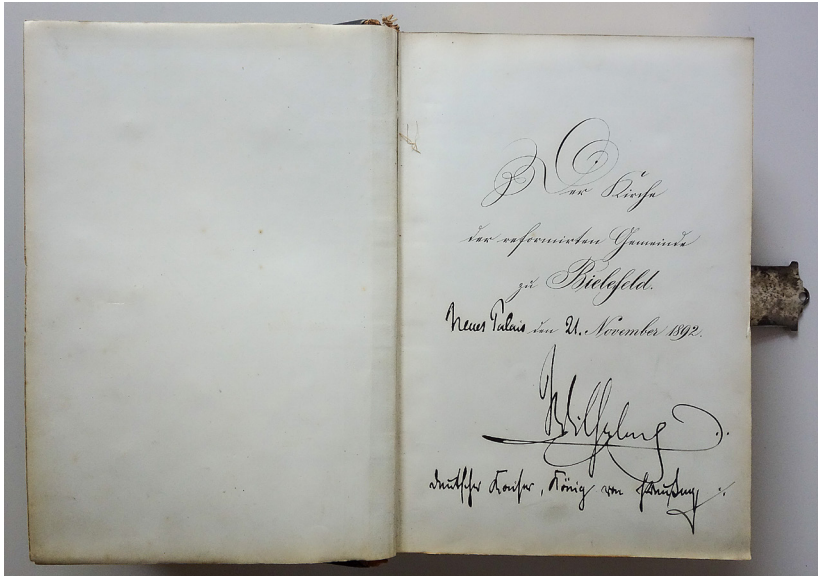 Der Kirche
der reformirten Gemeinde
zu Bielefeld.
Neues Palais den 21. November 1892.
Wilhelm
deutscher Kaiser, König von Preußen